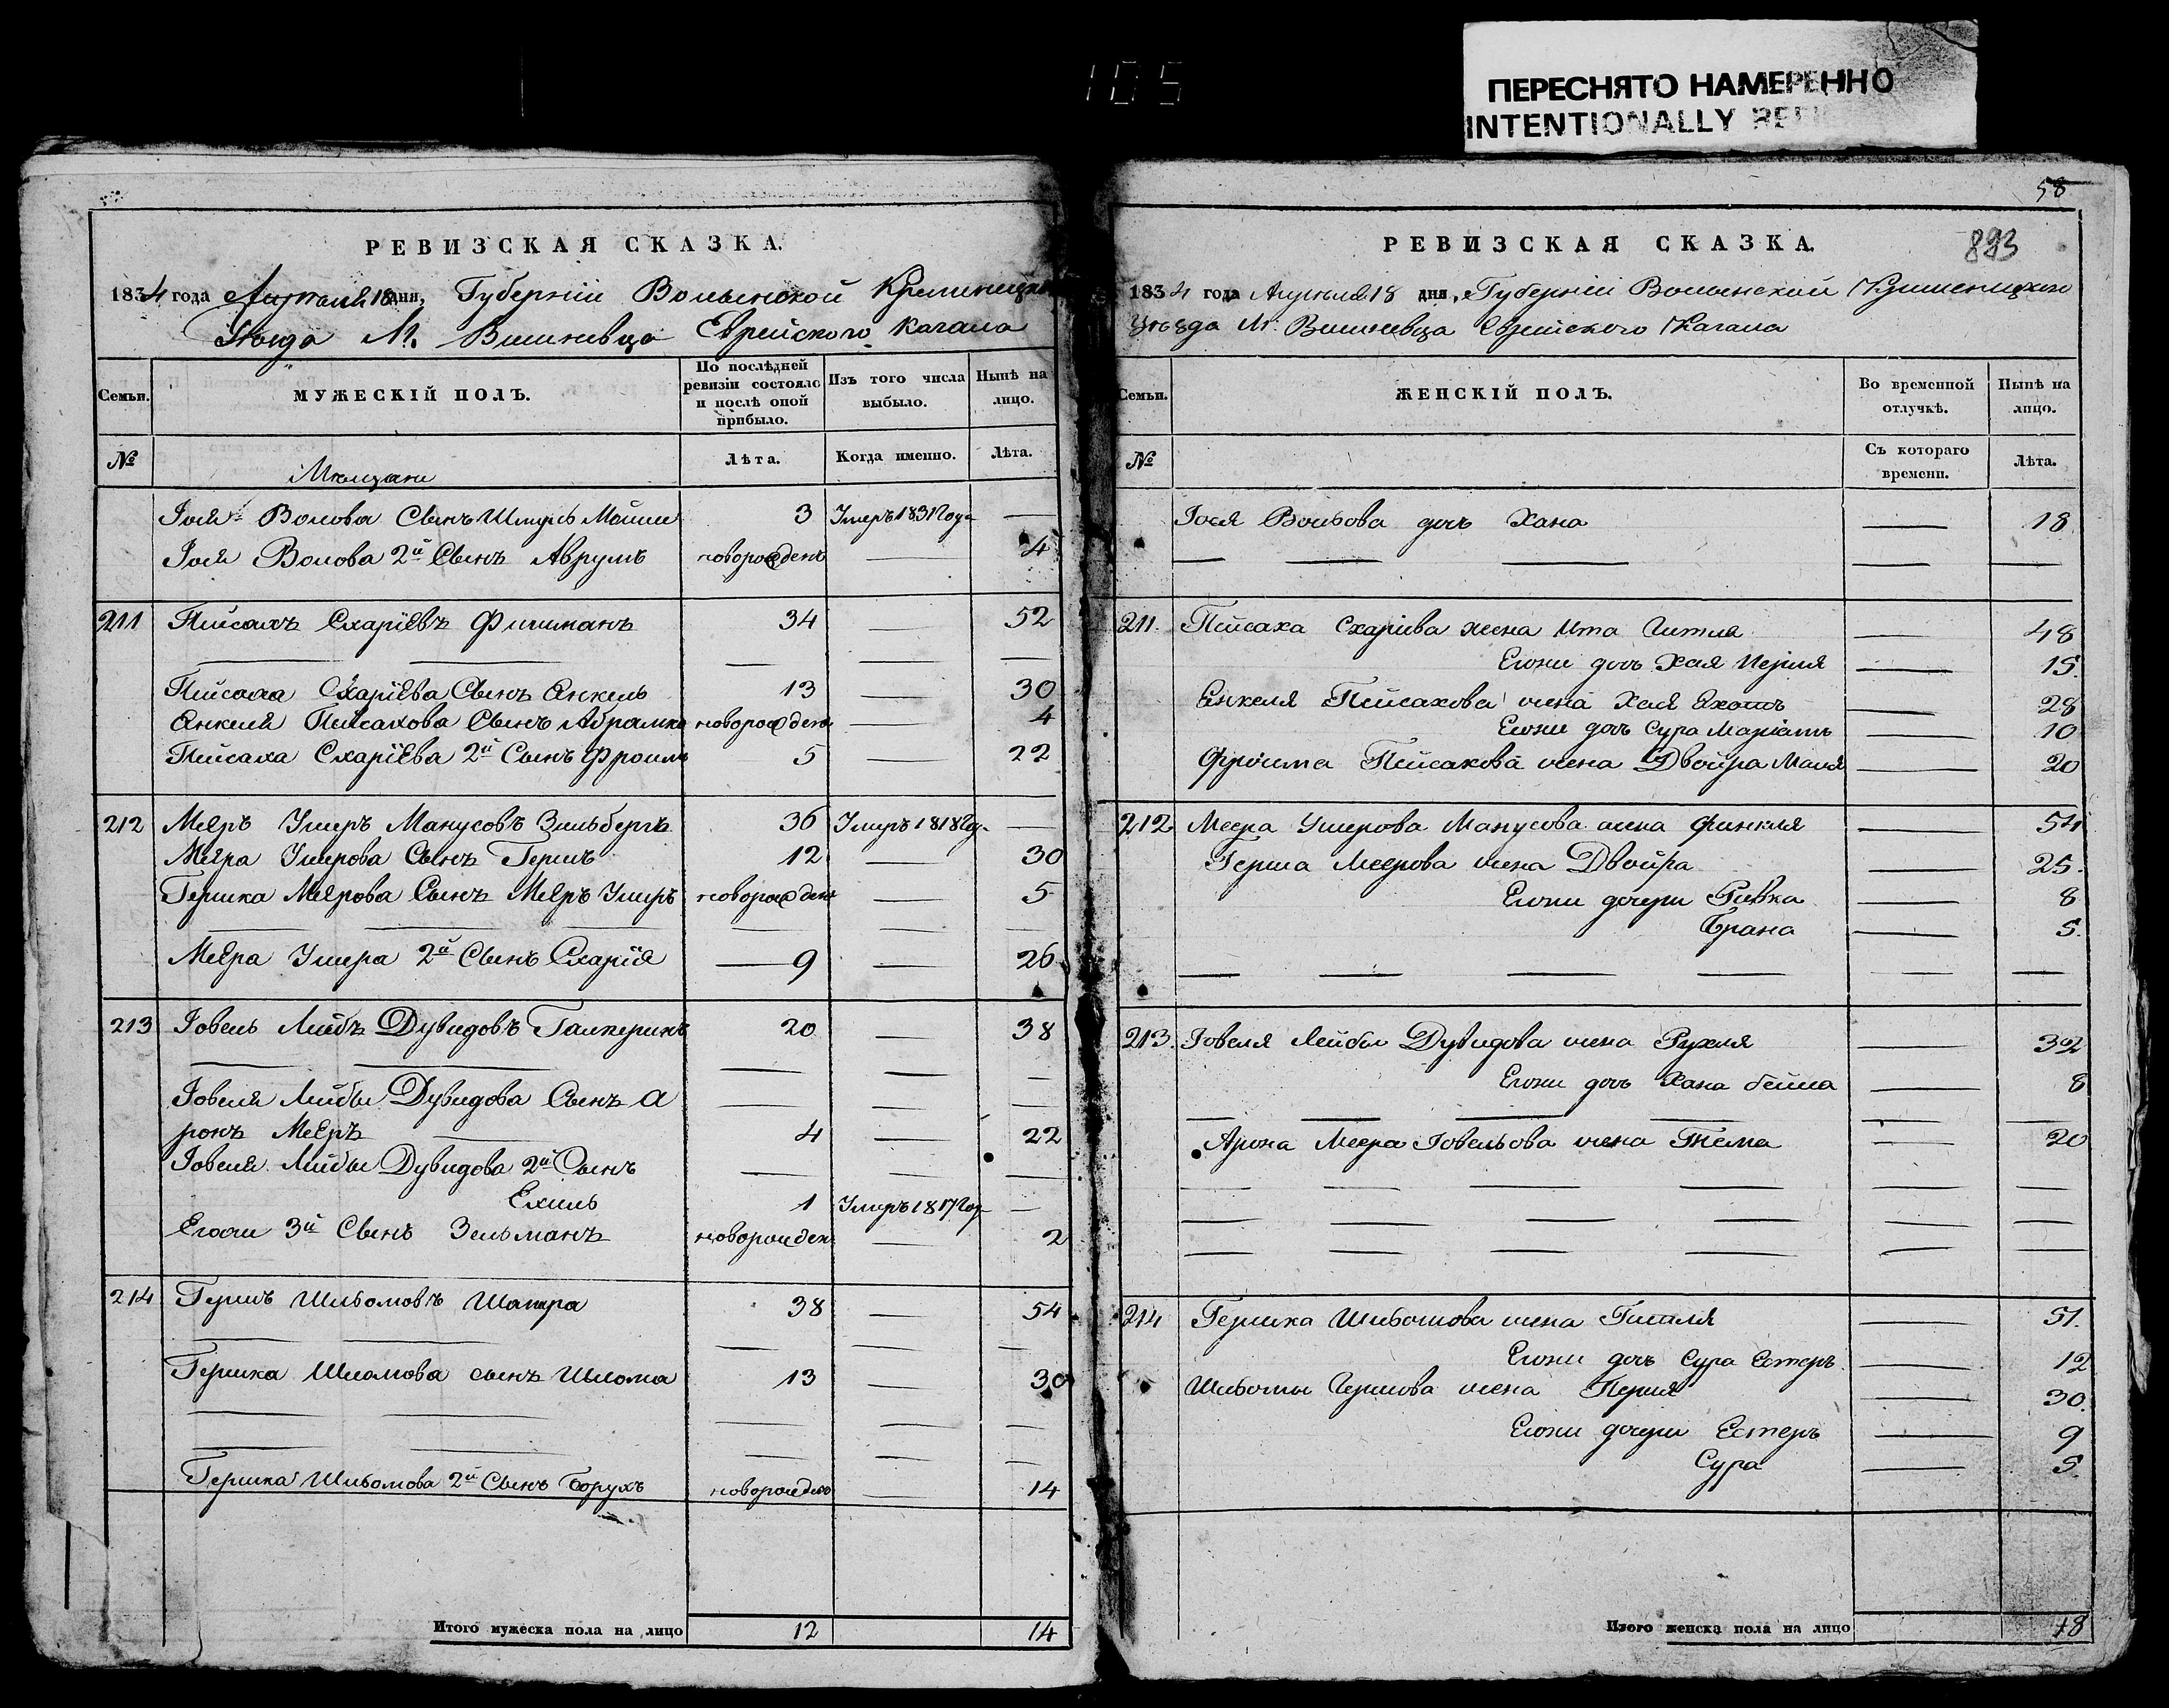 105
ПЕРЕСНЯТО НАМЕРЕННО
INTENTIONALLY
РЕВИЗСКАЯ СКАЗКА.
1834 года Апреля 18 дня, Губернiи Волынской Кременецкаго
Уѣзда М. Вишневца Еврейского Кагала
Семьи.
МУЖЕСКIЙ ПОЛЪ.
По послѣдней ревизiи состояло и послѣ оной прибыло.
Изъ того числа выбыло.
Нынѣ на лицо.
№
Мѣщане
Лѣта.
Когда именно.
Лѣта.
Iося Волова Сынъ Шмуль Мойше 3 Умеръ 1831 Года —
Iося Волова 2й Сынъ Аврумъ новорожденъ — 4
211 Пейсахъ Схарiевъ Фишманъ 34 — 52
Пейсаха Схарiева Сынъ Янкель 13 — 30
Янкеля Пейсахова Сынъ Абрамко новорожденъ — 4
Пейсаха Схарiева 2й Сынъ Фроимъ 5 — 22
212 Мееръ Умеръ Манусовъ Зильбергъ 36 Умеръ 1818 Год. —
Меера Умерова Сынъ Гершъ 12 — 30
Гершка Меерова Сынъ Мееръ Умеръ новорожден — 5
Меера Умера 2й Сынъ Схарiя 9 — 26
213 Iовель Лейбъ Дувидовъ Галперинъ 20 — 38
Iовеля Лейбы Дувидова Сынъ А
ронъ Мееръ 4 — 22
Iовеля Лейбы Дувидова 2й Сынъ
Ехиль 1 Умеръ 1817 Год —
Егожъ 3й Сынъ Зельманъ новорожден — 2
214 Гершъ Шльомовъ Шапира 38 — 54
Гершка Шломова сынъ Шлома 13 — 30
Гершка Шльомова 2й Сынъ Борухъ новорожденъ — 14
Итого мужеска пола на лицо 12 14
58
РЕВИЗСКАЯ СКАЗКА.
893
1834 года Апреля 18 дня, Губернiи Волынской Кременецкого
Уѣзда М. Вишневца Еврейского Кагала
Семьи.
ЖЕНСКIЙ ПОЛЪ.
Во временной отлучкѣ.
Нынѣ на лицо.
№
Съ котораго времени.
Лѣта.
Iося Вольова дочь Хана — 18
211. Пейсаха Схарiева жена Ита Гитля — 48
Егожъ дочь Хая Перля — 15.
Енкеля Пейсахова жена Хая — 28
Егожъ дочь Сура Марiямъ — 10
Фроима Пейсахова жена Двойра Маля — 20
212 Меера Умерова Манусова жена Финкля — 54
Герша Меерова жена Двойра — 25.
Егожъ дочери Ривка — 8
Брана — 5.
213. Iовеля Лейбы Дувидова жена Рухля — 32
Егожъ дочь Хана Бейла — 8
Арона Меера Iовельова жена Тема — 20
214 Гершка Шльомова жена Гиталя — 51.
Егожъ дочь Сура Естеръ — 12
Шльомы Гершова жена Перля 30.
Егожъ дочери Естеръ — 9
Сура — 5.
Итого женска пола на лицо 18